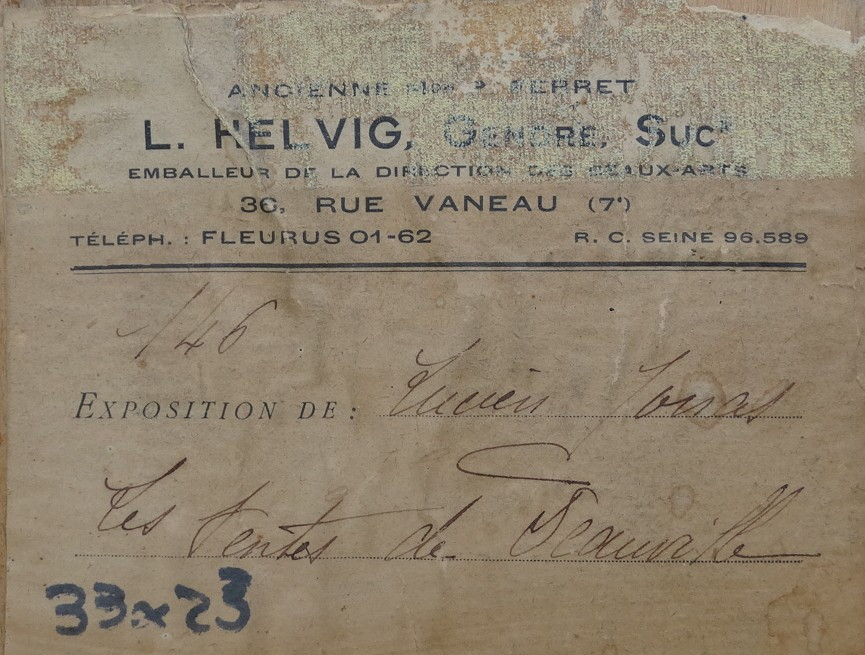 ANCIENNE Mon P. FERRET
L. HELVIG, GENDRE, SUCr
EMBALLEUR DE LA DIRECTION DES BEAUX-ARTS
36, RUE VANEAU (7e)
TÉLÉPH. : FLEURUS 01-62 R. C. SEINE 96.589
146
EXPOSITION DE : Lucien Jonas
Les Tentes de Deauville
33x23